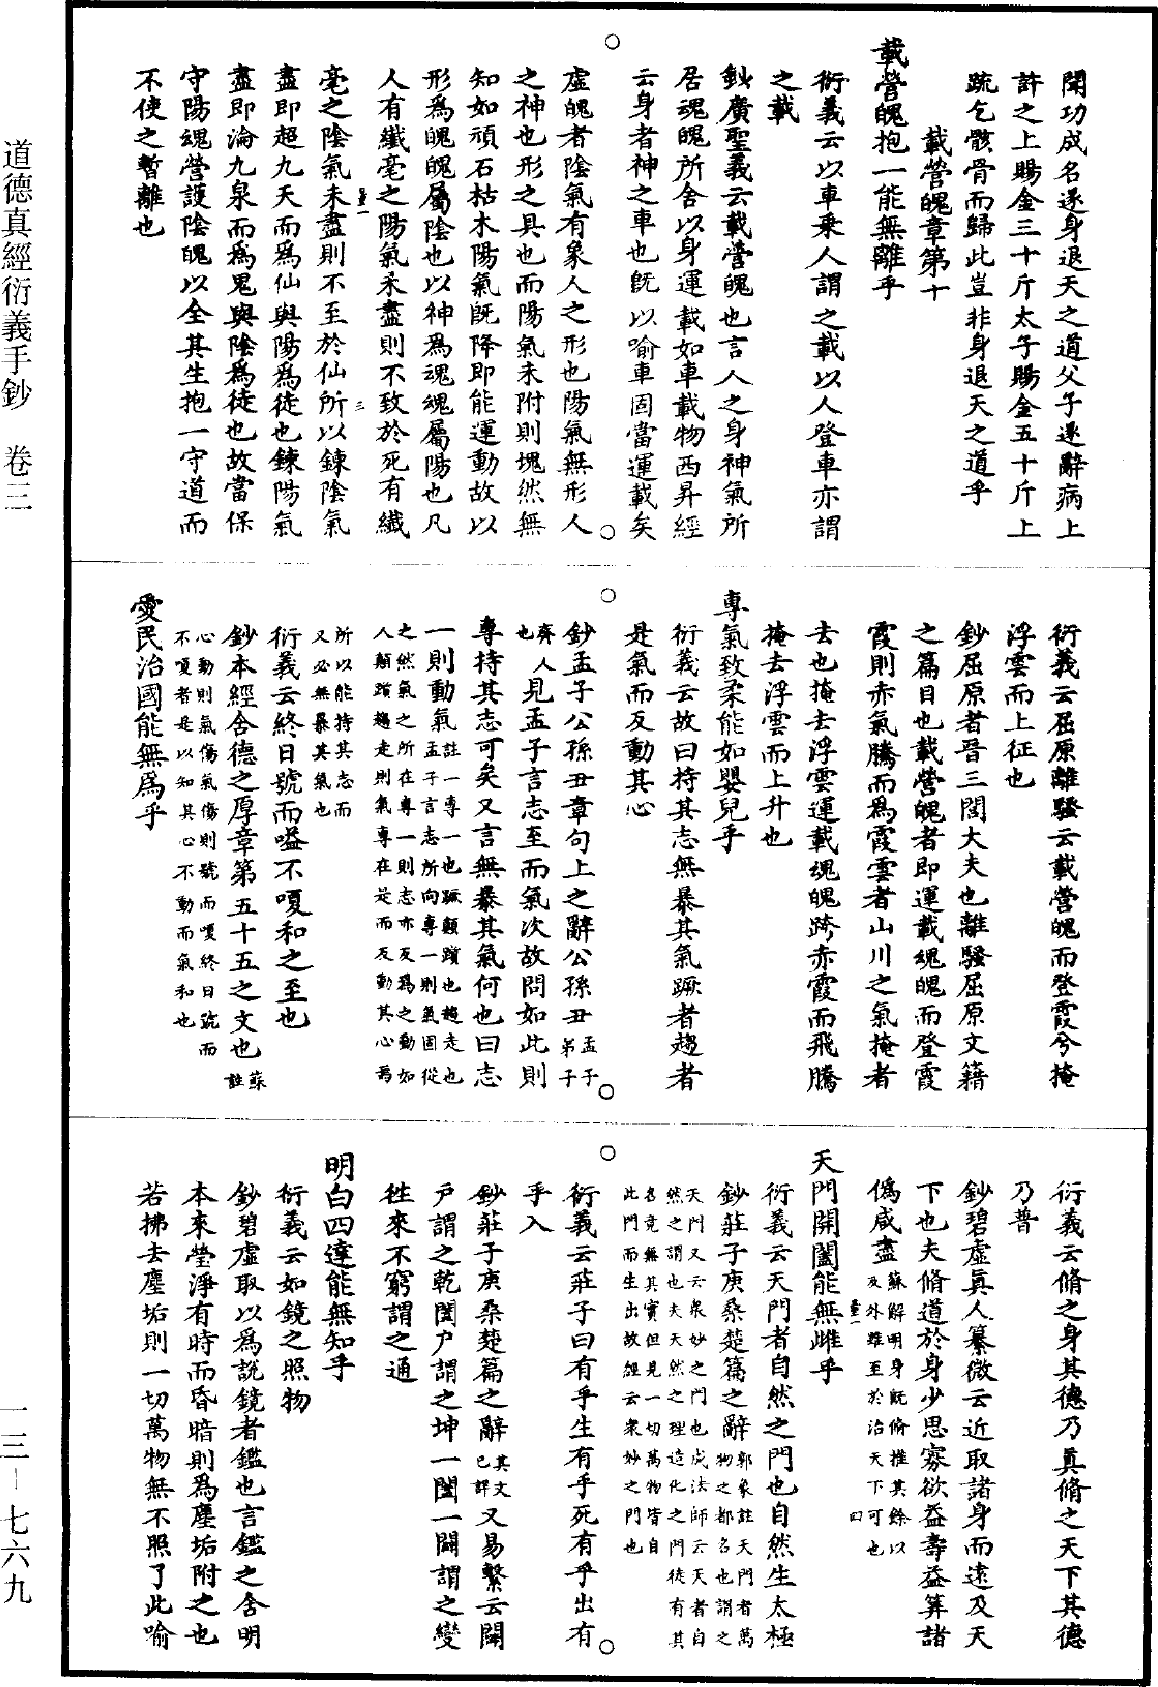 聞功成名遂身退天之道父子遂辭病上
許之上賜金三十斤太子賜金五十斤上
疏乞骸骨而歸此豈非身退天之道乎
載營魄章第十
載營魄抱一能無離乎
衍義云以車乘人謂之載以人登車亦謂
之載
鈔廣聖義云載營魄也言人之身神氣所
居魂魄所舍以身運載如車載物西昇經
云身者神之車也旣以喻車固當運載矣
虛魄者陰氣有象人之形也陽氣無形人
之神也形之具也而陽氣未附則塊然無
知如頑石枯木陽氣旣降即能運動故以
形爲魄魄屬陰也以神爲魂魂屬陽也凡
人有纖毫之陽氣未盡則不致於死有纖
毫之陰氣未盡則不至於仙所以鍊陰氣
盡即超九天而爲仙與陽爲徒也鍊陽氣
盡即淪九泉而爲鬼與陰爲徒也故當保
守陽魂營護陰魄以全其生抱一守道而
不使之暫離也
衍義云屈原離騷云載營魄而登霞兮掩
浮雲而上征也
鈔屈原者晉三閭大夫也離騷屈原文籍
之篇目也載營魄者即運載魂魄而登霞
霞則赤氣騰而爲霞雲者山川之氣掩者
去也掩去浮雲運載魂魄跨赤霞而飛騰
掩去浮雲而上升也
專氣致柔能如嬰兒乎
衍義云故曰持其志無暴其氣蹶者趨者
是氣而反動其心
鈔孟子公孫丑章句上之辭公孫丑孟子弟子
齊人也見孟子言志至而氣次故問如此則
專持其志可矣又言無暴其氣何也曰志
一則動氣註一專一也蹶顛躓也趨走也
孟子言志所向專一則氣固從
之然氣之所在專一則志亦反爲之動如
人顛躓趨走則氣專在是而反動其心焉
所以能持其志而
又必無暴其氣也
衍義云終日號而嗌不嗄和之至也
鈔本經含德之厚章第五十五之文也蘇註
心動則氣傷氣傷則號而嗄終日號而
不嗄者是以知其心不動而氣和也
愛民治國能無爲乎
衍義云脩之身其德乃眞脩之天下其德
乃普
鈔碧虛眞人纂微云近取諸身而遠及天
下也夫脩道於身少思寡欲益壽益筭諸
僞咸盡蘇解明身旣脩推其餘以
及外雖至於治天下可也
天門開闔能無雌乎
衍義云天門者自然之門也自然生太極
鈔莊子庚桑楚篇之辭郭象註天門者萬
物之都名也謂之
天門又云衆妙之門也成法師云天者自
然之謂也夫天然之理造化之門徒有其
名竟無其實但見一切萬物皆自
此門而生出故經云衆妙之門也
衍義云莊子曰有乎生有乎死有乎出有
乎入
鈔莊子庚桑楚篇之辭其文已詳又易繫云闢
戶謂之乾闔戶謂之坤一闔一闢謂之變
徃來不窮謂之通
明白四達能無知乎
衍義云如鏡之照物
鈔碧虛取以爲說鏡者鑑也言鑑之含明
本來瑩淨有時而昏暗則爲塵垢附之也
若拂去塵垢則一切萬物無不照了此喻
道德真經衍義手鈔 卷三
一三－七六九